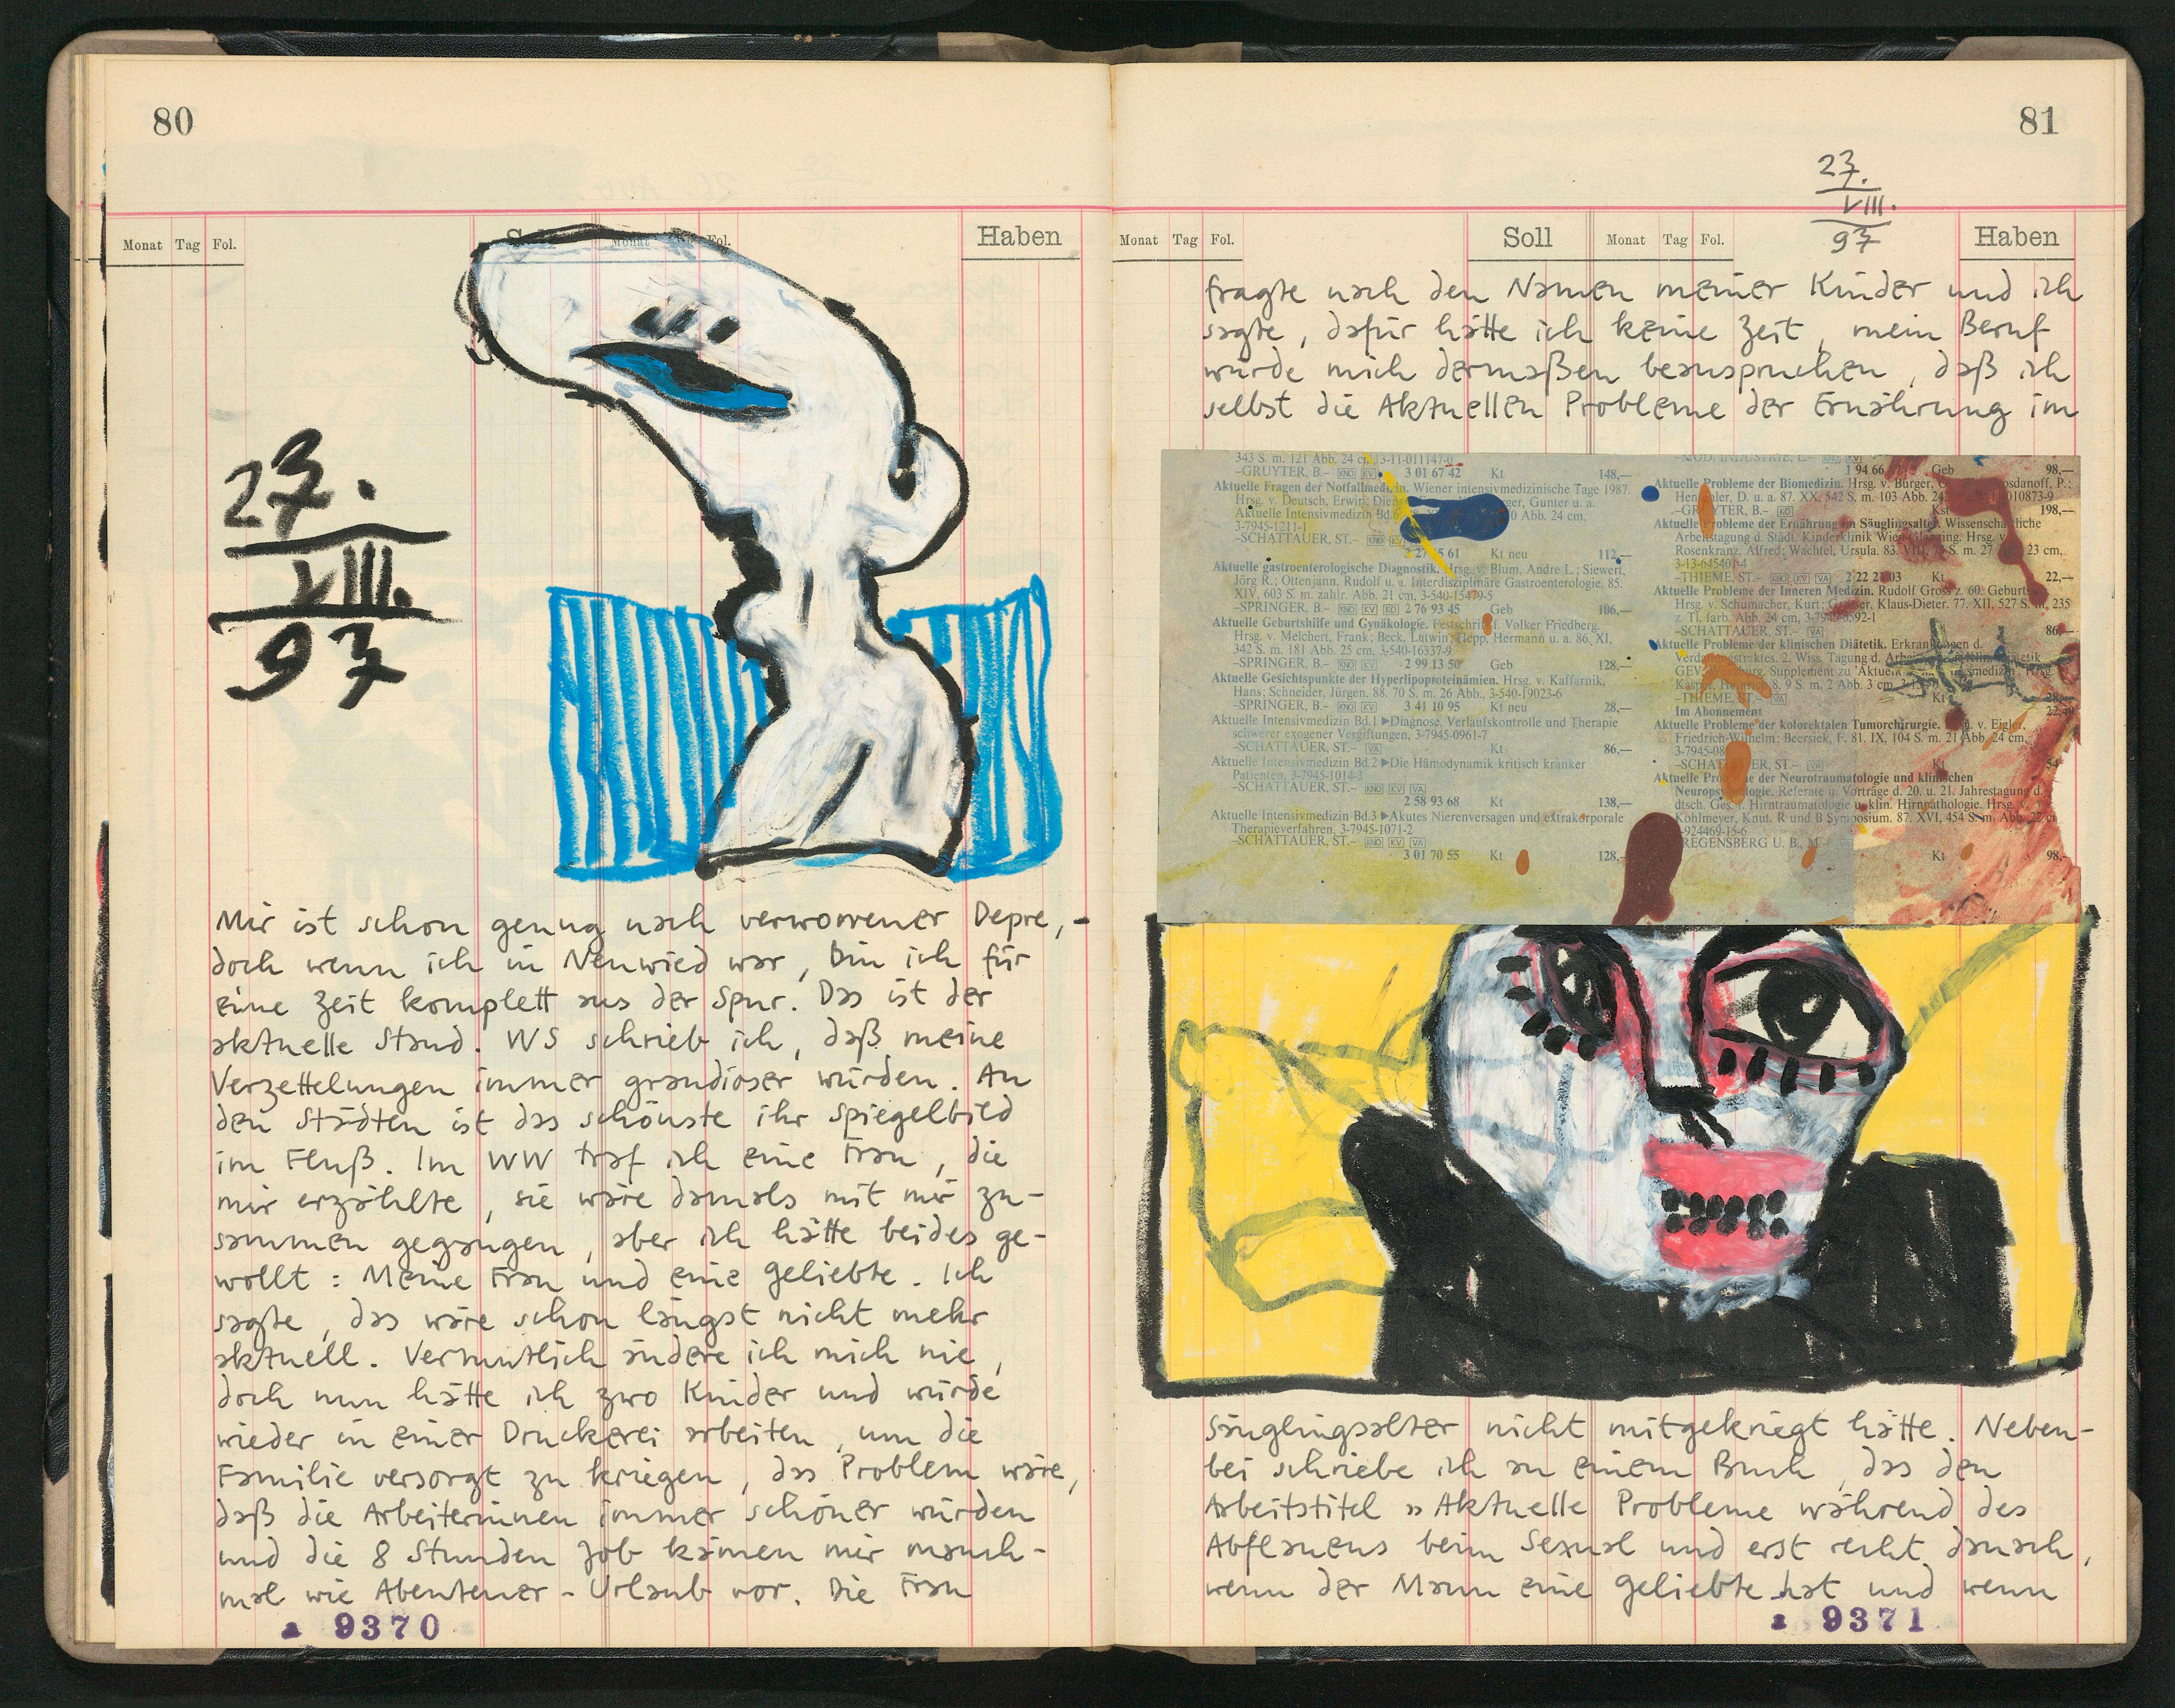 80
Monat Tag Fol.
Monat
Fol.
Haben
27.
VIII.
97
Mir ist schon genug nach verworrener Depre,-
doch wenn ich in Neuwied war, bin ich für
eine Zeit komplett aus der Spur. Das ist der
aktuelle Stand. WS schrieb ich, daß meine
Verzettelungen immer grandioser würden. An
den Städten ist das schönste ihr Spiegelbild
im Fluß. Im WW traf ich eine Frau, die
mir erzählte, sie wäre damals mit mir zu-
sammen gegangen, aber ich hätte beides ge-
wollt: Meine Frau und eine Geliebte. Ich
sagte, das wäre schon längst nicht mehr
aktuell. Vermutlich ändere ich mich nie,
doch nun hätte ich zwo Kinder und würde
wieder in einer Druckerei arbeiten, um die
Familie versorgt zu kriegen, das Problem wäre,
daß die Arbeiterinnen immer schöner würden
und die 8 Stunden Job kämen mir manch-
mal wie Abenteuer-Urlaub vor. Die Frau
9370
81
27.
VIII.
97
Monat Tag Fol.
Soll
Monat Tag Fol.
Haben
fragte nach den Namen meiner Kinder und ich
sagte, dafür hätte ich keine Zeit, mein Beruf
würde mich dermaßen beanspruchen, daß ich
selbst die Aktuellen Probleme der Ernährung im
343 S. m. 121 Abb. 24 cm, 3-11-011147-0
–GRUYTER, B.– KNO KV 3 01 67 42 Kt 148,—
Aktuelle Fragen der Notfallmedizin. Wiener intensivmedizinische Tage 1987.
Hrsg. v. Deutsch, Erwin; Gunter u. a.
Aktuelle Intensivmedizin Bd. Abb. 24 cm,
3-7945-1211-1
–SCHATTAUER, ST.– KNO KV
61 Kt neu 112,—
Aktuelle gastroenterologische Diagnostik. Hrsg. v. Blum, Andre L.; Siewert,
Jörg R.; Ottenjann, Rudolf u. a. Interdisziplinäre Gastroenterologie. 85.
XIV, 603 S. m. zahlr. Abb. 21 cm, 3-540-15479-5
–SPRINGER, B.– KNO KV KO 2 76 93 45 Geb 106,—
Aktuelle Geburtshilfe und Gynäkologie. Festschrift f. Volker Friedberg.
Hrsg. v. Melchert, Frank; Beck, Lutwin; Hepp, Hermann u. a. 86. XI,
342 S. m. 181 Abb. 25 cm, 3-540-16337-9
–SPRINGER, B.– KNO KV 2 99 13 50 Geb 128,—
Aktuelle Gesichtspunkte der Hyperlipoproteinämien. Hrsg. v. Kaffarnik,
Hans; Schneider, Jürgen. 88. 70 S. m. 26 Abb., 3-540-19023-6
–SPRINGER, B.– KNO KV 3 41 10 95 Kt neu 28,—
Aktuelle Intensivmedizin Bd.1 ▶Diagnose, Verlaufskontrolle und Therapie
schwerer exogener Vergiftungen, 3-7945-0961-7
–SCHATTAUER, ST.– VA Kt 86,—
Aktuelle Intensivmedizin Bd.2 ▶Die Hämodynamik kritisch kranker
Patienten, 3-7945-1014-3
–SCHATTAUER, ST.– KNO KV VA
2 58 93 68 Kt 138,—
Aktuelle Intensivmedizin Bd.3 ▶Akutes Nierenversagen und extrakorporale
Therapieverfahren, 3-7945-1071-2
–SCHATTAUER, ST.– KNO KV VA
3 01 70 55 Kt 128,—
1 94 66 Geb 98,—
Aktuelle Probleme der Biomedizin. Hrsg. v. Burger, P.;
D. u. a. 87. XX, 542 S. m. 103 Abb.
–GRUYTER, B.– KO Kst 198,—
Aktuelle Probleme der Ernährung im Säuglingsalter. Wissenschaftliche
Arbeitstagung d. Städt. Kinderklinik Wien Hrsg. v.
Rosenkranz, Alfred; Wachtel, Ursula. 83. VIII, S. m. 27 23 cm,
–THIEME, ST.– KNO KV VA Kt 22,—
Aktuelle Probleme der Inneren Medizin. Rudolf Gross z. 60. Geburtstag
Hrsg. v. Schumacher, Kurt; Klaus-Dieter. 77. XII, 527 S. m. 235
z. Tl. farb. Abb. 24 cm,
–SCHATTAUER, ST.– VA 86,—
Aktuelle Probleme der klinischen Diätetik. Erkrankungen d.
Verdauungstraktes. 2. Wiss. Tagung d.
Supplement zu
S. m. 2 Abb.
–THIEME, VA Kt 28,—
Im Abonnement
Aktuelle Probleme der kolorektalen Tumorchirurgie. v. Eigler,
Friedrich-Wilhelm; Beersiek, F. 81. IX, 104 S. m. 21 Abb. 24 cm,
–SCHATTAUER, ST.– VA Kt 54
Aktuelle Probleme der Neurotraumatologie und klinischen
Neuropsychologie. Referate u. Vorträge d. 20. u. 21. Jahrestagung d.
dtsch. Ges. f. Hirntraumatologie u. klin. Hirnpathologie. Hrsg. v.
Kohlmeyer, Knut. R und B Symposium. 87. XVI, 454 S. m. Abb.
REGENSBERG U. B., M
Kt 98,-
Säuglingsalter nicht mitgekriegt hätte. Neben-
bei schriebe ich an einem Buch, das den
Arbeitstitel »Aktuelle Probleme während des
Abflauens beim Sexual und erst recht danach,
wenn der Mann eine Geliebte hat und wenn
9371